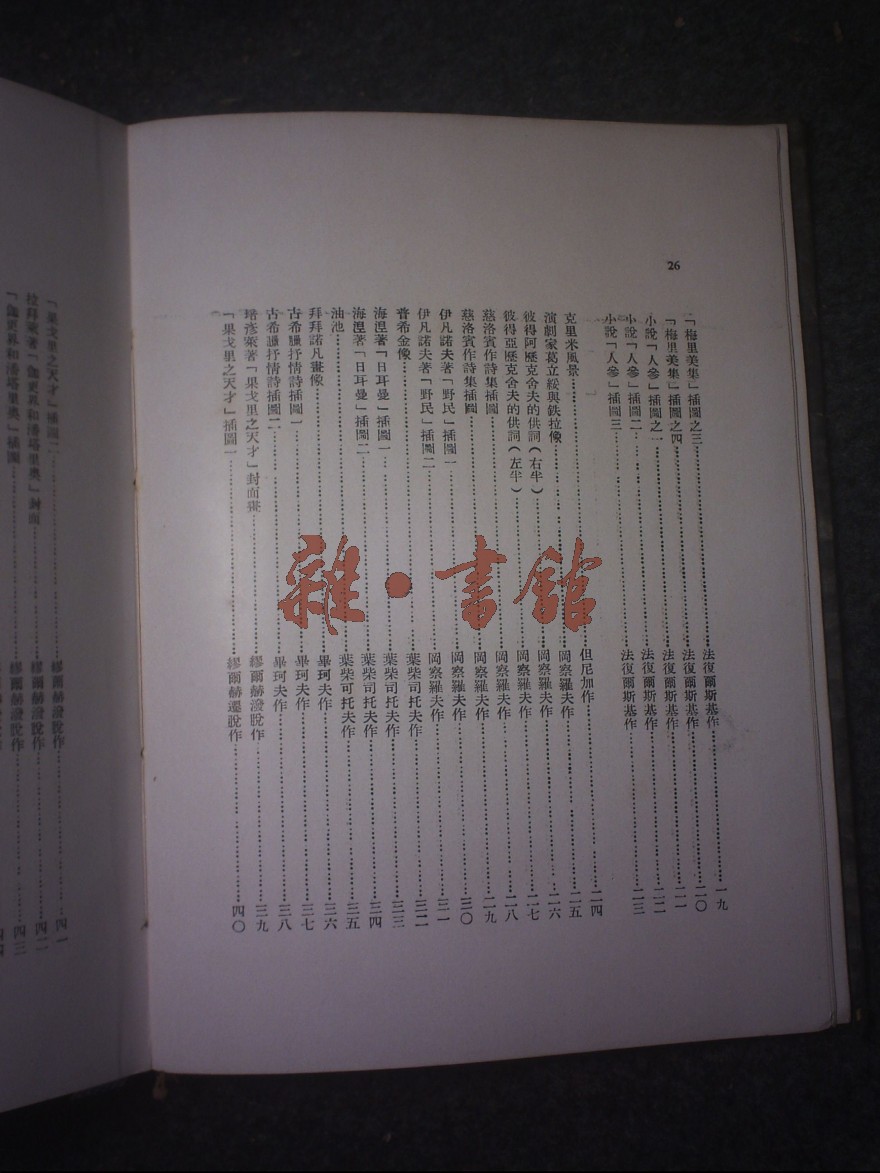 26
「梅里美集」插圖之三……法復爾斯基作……一九
「梅里美集」插圖之四……法復爾斯基作……二〇
小說「人參」插圖之一……法復爾斯基作……二一
小說「人參」插圖二……法復爾斯基作……二二
小說「人參」插圖三……法復爾斯基作……二三
克里米風景……但尼加作……二四
演劇家葛立綏與鉄拉像……岡察羅夫作……二五
彼得阿歷克舍夫的供詞(右半)……岡察羅夫作……二六
彼得亞歷克舍夫的供詞(左半)……岡察羅夫作……二七
慈洛賓作詩集插圖……岡察羅夫作……二八
慈洛賓作詩集插圖……岡察羅夫作……二九
伊凡諾夫著「野民」插圖一……岡察羅夫作……三〇
伊凡諾夫著「野民」插圖二……岡察羅夫作……三一
普希金像……葉柴司托夫作……三二
海涅著「日耳曼」插圖一……葉柴司托夫作……三三
海涅著「日耳曼」插圖二……葉柴司托夫作……三四
油池……葉柴可托夫作……三五
拜拜諾凡畫像……畢珂夫作……三六
古希臘抒情詩插圖一……畢珂夫作……三七
古希臘抒情詩插圖二……畢珂夫作……三八
培彥萊著「果戈里之天才」封面畫……繆爾赫潑脫作……三九
「果戈里之天才」插圖一……繆爾赫還脫作……四〇
「果戈里之天才」插圖二……繆爾赫潑脫作……四一
封面……繆爾赫潑脫作……四二
插圖……繆爾赫潑脫作……四三
雜·書館